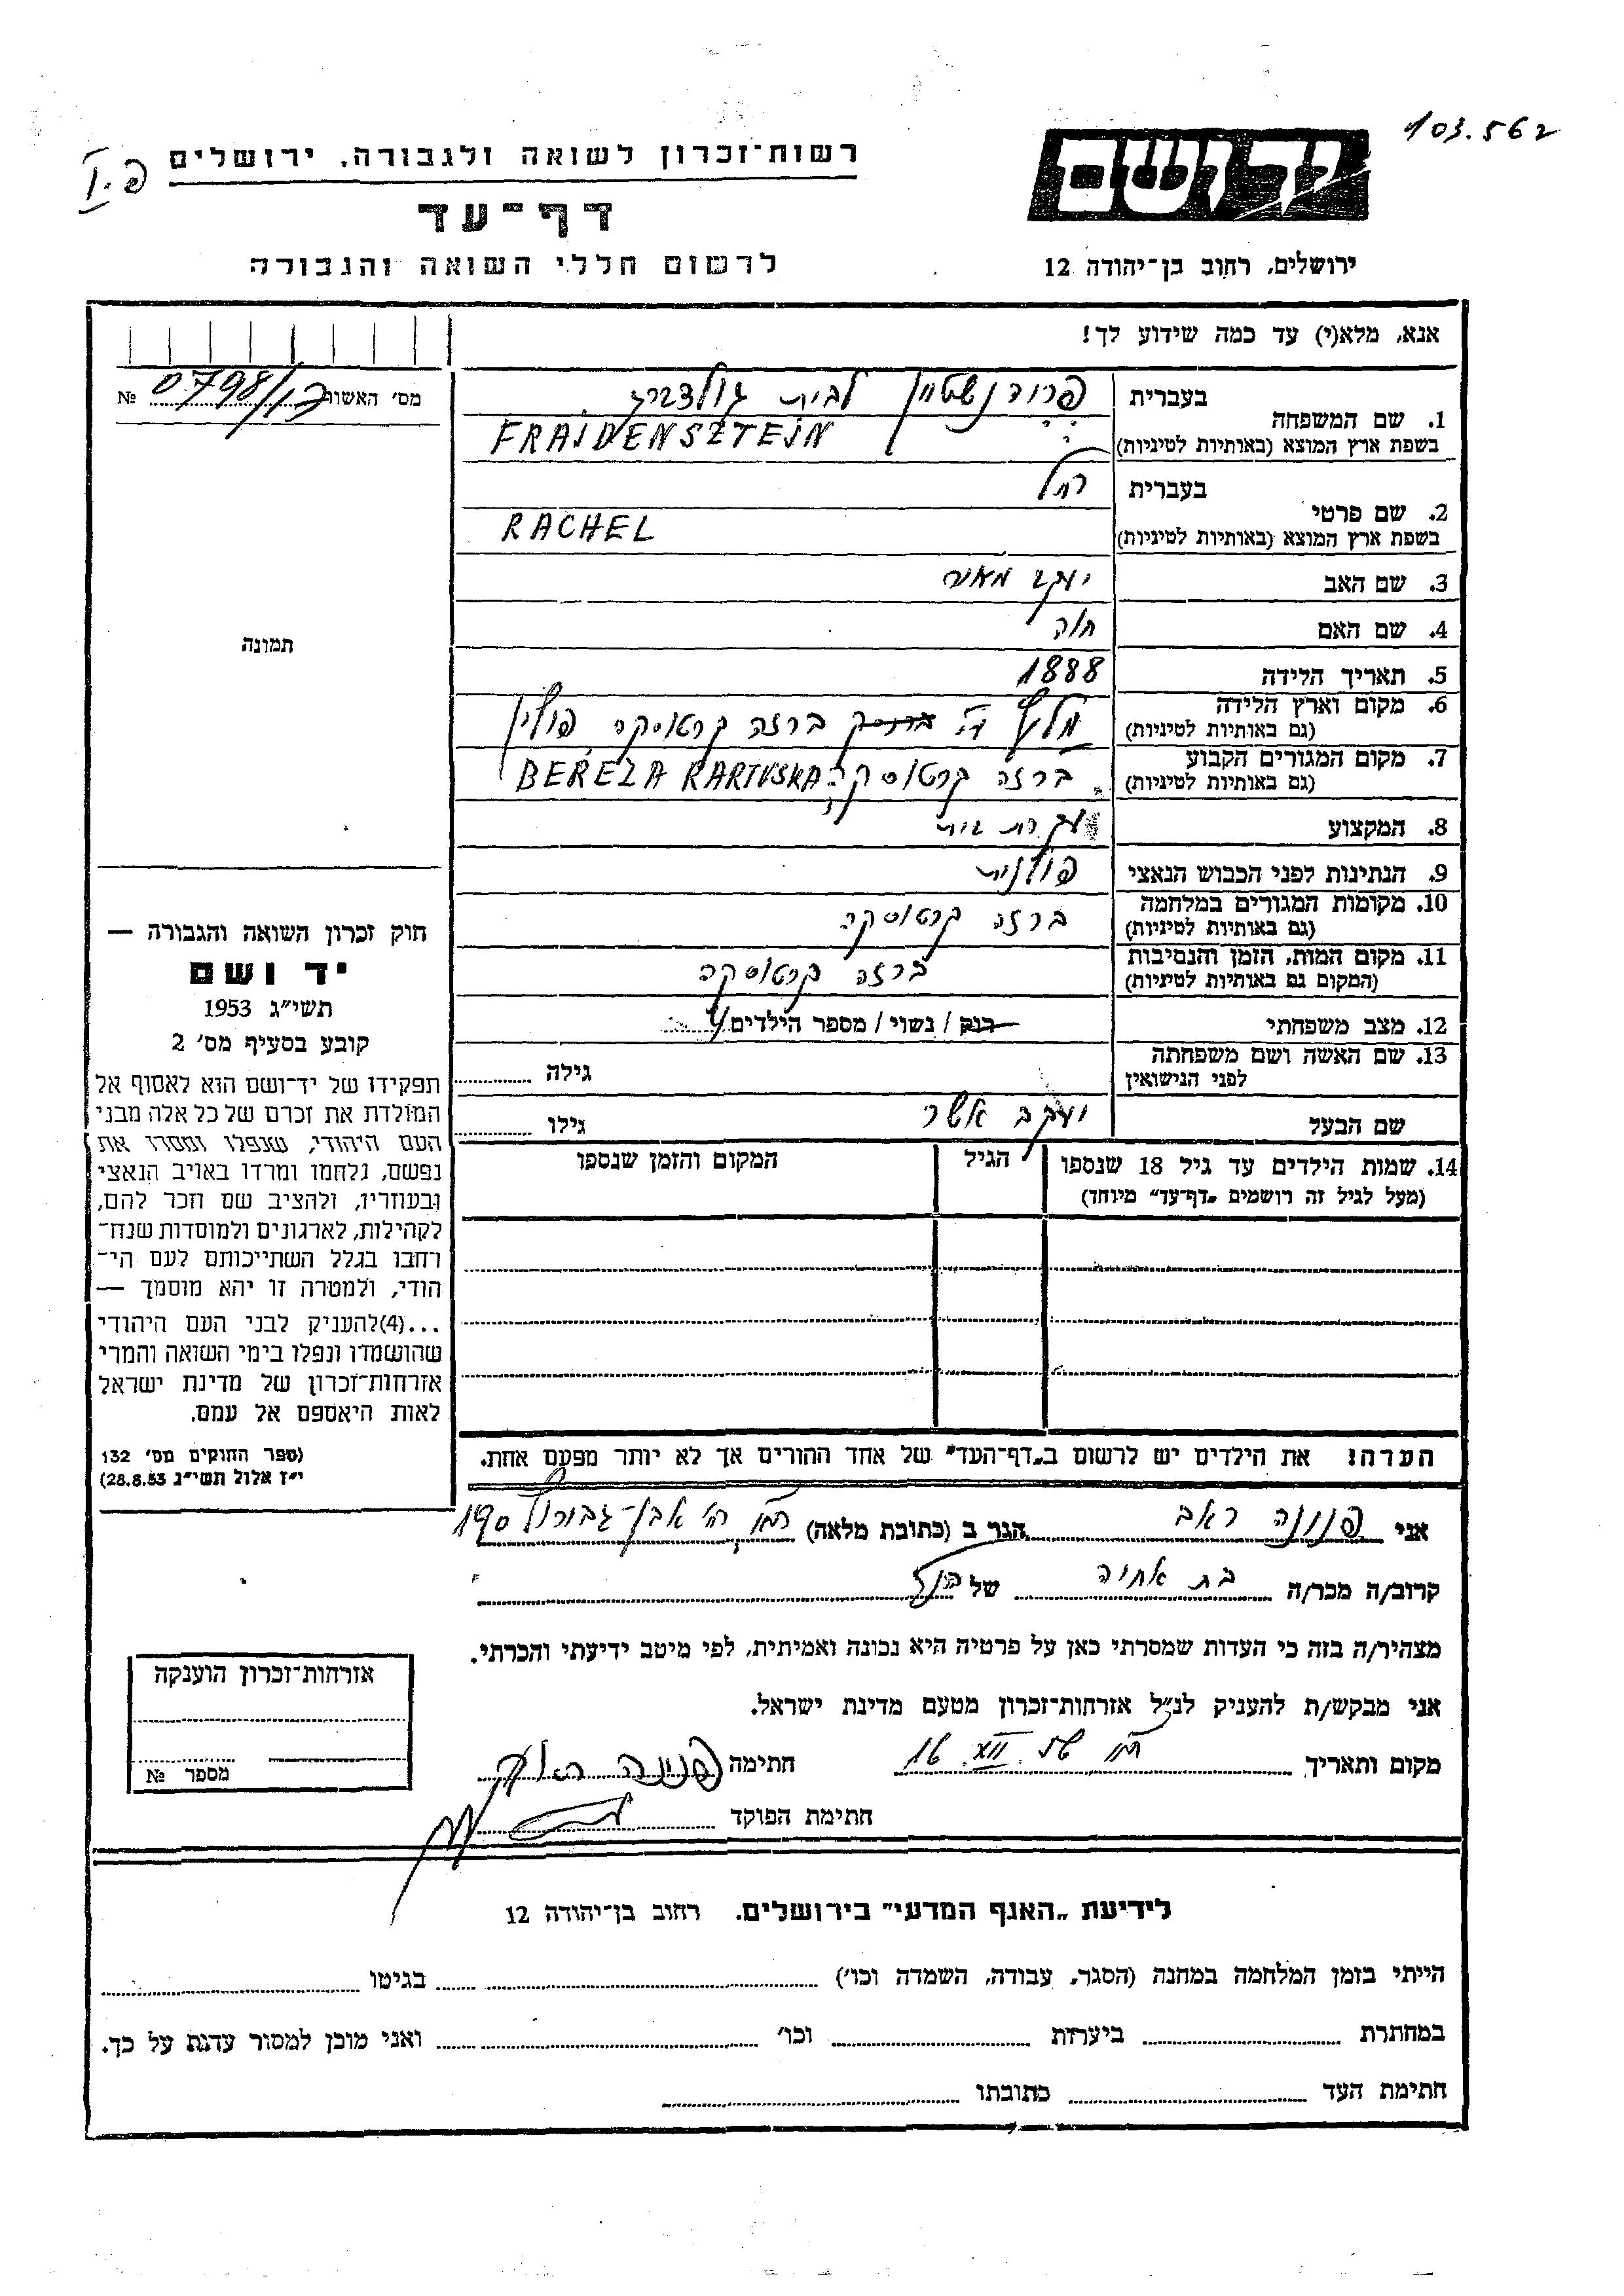 103.562
יד ושם
ירושלים, רחוב בן־יהודה 12
רשות־זכרון לשואה ולגבורה, ירושלים
דף־עד
לרשום חללי השואה והגבורה
אנא, מלא(י) עד כמה שידוע לך!
מס׳ האשור № 0798/17
בעברית
1. שם המשפחה
בשפת ארץ המוצא (באותיות לטיניות)
פרוידנשטיין לבית גולדברג
FRAJDENSZTEJN
בעברית
2. שם פרטי
בשפת ארץ המוצא (באותיות לטיניות)
רחל
RACHEL
3. שם האב יעקב מאיר
4. שם האם חוה
5. תאריך הלידה 1888
6. מקום וארץ הלידה
(גם באותיות לטיניות)
ברזה קרטוסקה פולין
7. מקום המגורים הקבוע
(גם באותיות לטיניות)
ברזה קרטוסקה BEREZA KARTUSKA
8. המקצוע עקרת בית
9. הנתינות לפני הכבוש הנאצי פולנית
10. מקומות המגורים במלחמה
(גם באותיות לטיניות)
ברזה קרטוסקה
11. מקום המות, הזמן והנסיבות
(המקום גם באותיות לטיניות)
ברזה קרטוסקה
12. מצב משפחתי רווק / נשוי / מספר הילדים 4
13. שם האשה ושם משפחתה
לפני הנישואין
גילה
שם הבעל יעקב אשר גילו
14. שמות הילדים עד גיל 18 שנספו
(מעל לגיל זה רושמים „דף־עד״ מיוחד)
הגיל
המקום והזמן שנספו
הערה! את הילדים יש לרשום ב„דף־העד״ של אחד ההורים אך לא יותר מפעם אחת.
תמונה
חוק זכרון השואה והגבורה —
יד ושם
תשי״ג 1953
קובע בסעיף מס׳ 2
תפקידו של יד־ושם הוא לאסוף אל
המולדת את זכרם של כל אלה מבני
העם היהודי, שנפלו ומסרו את
נפשם, נלחמו ומרדו באויב הנאצי
ובעוזריו, ולהציב שם וזכר להם,
לקהילות, לארגונים ולמוסדות שנח־
רחבו בגלל השתייכותם לעם הי־
הודי, ולמטרה זו יהא מוסמך —
...(4)להעניק לבני העם היהודי
שהושמדו ונפלו בימי השואה והמרי
אזרחות־זכרון של מדינת ישראל
לאות היאספם אל עמם.
(ספר החוקים מס׳ 132
י״ז אלול תשי״ג 28.8.53)
אני פנינה ראב הגר ב (כתובת מלאה) אבן־גבירול 190
קרוב/ה מכר/ה בת אחיה של הנ״ל
מצהיר/ה בזה כי העדות שמסרתי כאן על פרטיה היא נכונה ואמיתית, לפי מיטב ידיעתי והכרתי.
אני מבקש/ת להעניק לנ״ל אזרחות־זכרון מטעם מדינת ישראל.
מקום ותאריך 16 XII 56 חתימה פנינה ראב
חתימת הפוקד
אזרחות־זכרון הוענקה
מספר №
לידיעת „האגף המדעי״ בירושלים. רחוב בן־יהודה 12
הייתי בזמן המלחמה במחנה (הסגר, עבודה, השמדה וכו׳) בגיטו
במחתרת ביערות וכו׳ ואני מוכן למסור עדות על כך.
חתימת העד כתובתו